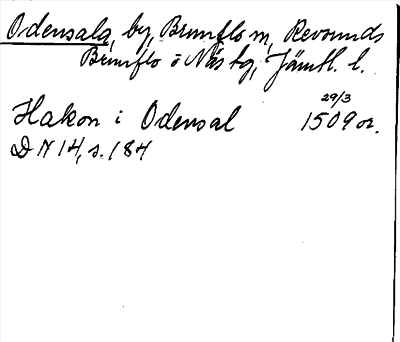 Odensala, by, Brunflo m, Revsunds
Brunflo o Näs tg, Jämtl. l.
29/3
Hakon i Odensal 1509 or.
DN 14, s. 184